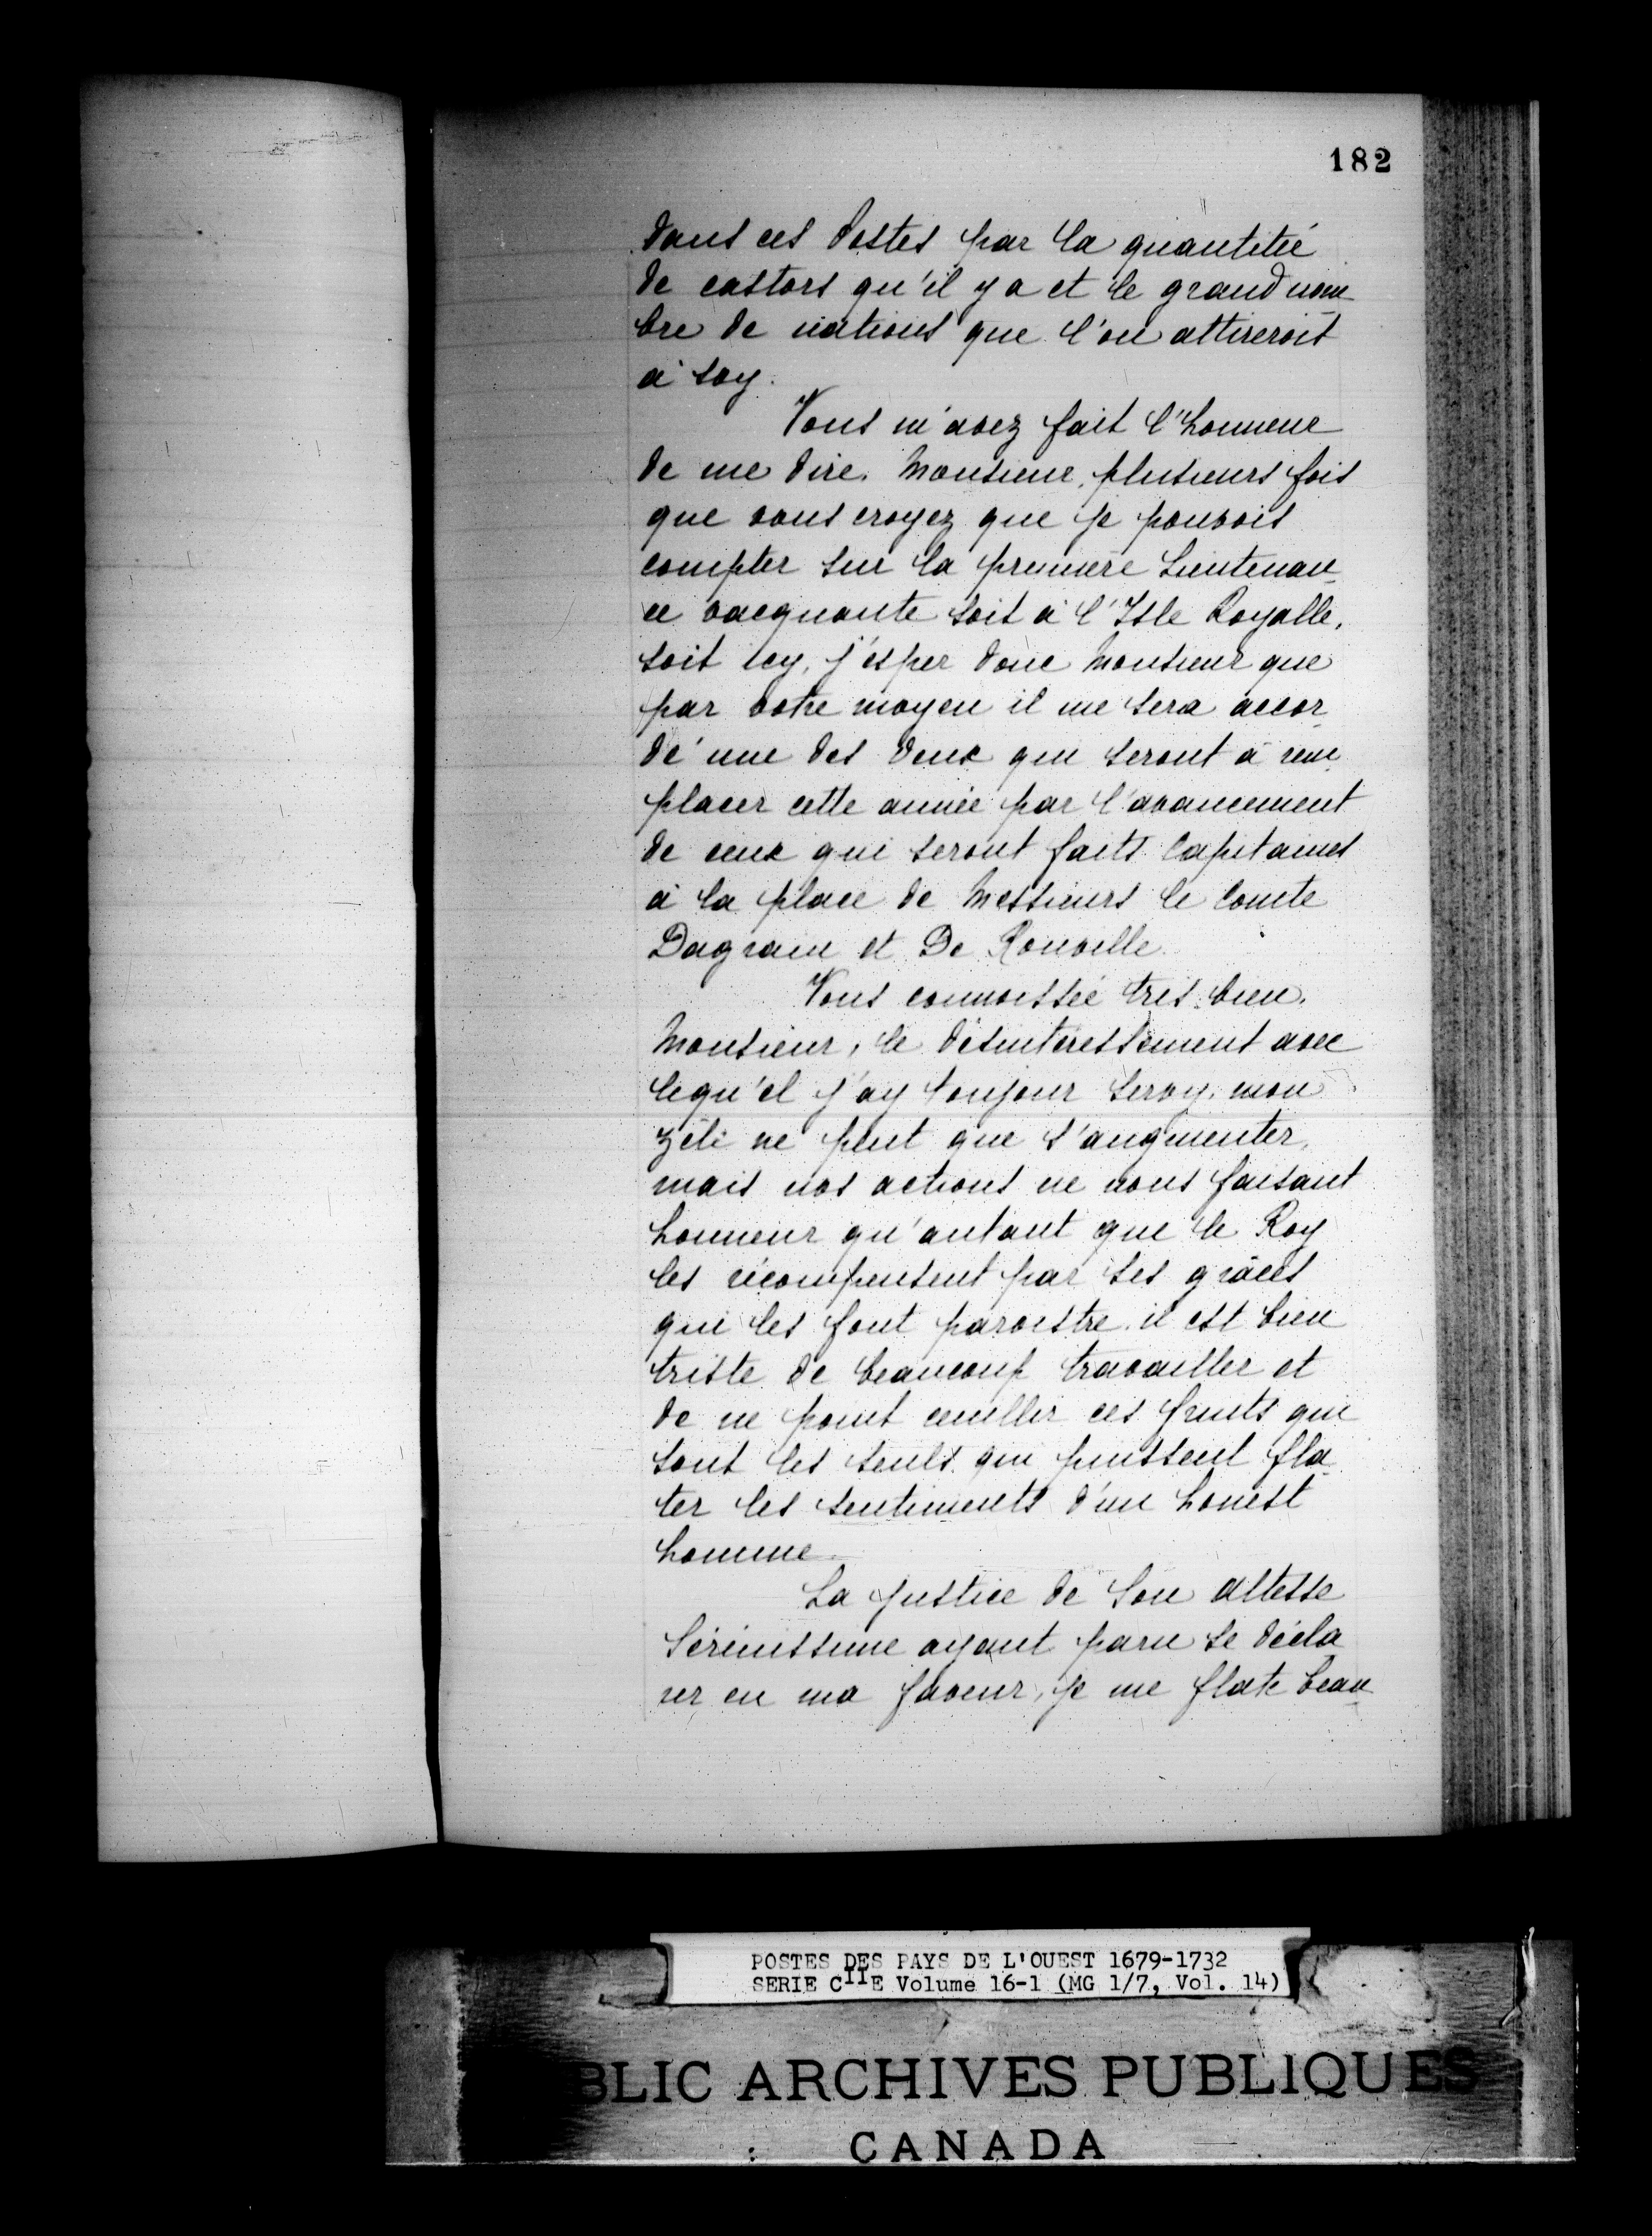 182
dans ces Postes par la quantitée
de castors qu'il y a et le grand nom
bre de nations que l'on attireroit
à soy.
Vous m'avez fait l'honneur
de me dire, Monsieur, plusieurs fois
que vous croyez que je pouvois
compter sur la première Lieutenan
ce vacquante soit à l'Isle Royalle,
soit icy, j'esper donc Monsieur que
par votre moyen il me sera accor
dé une des deux qui seront à rem
placer cette année par l'avancement
de ceux qui seront faits Capitaines
à la place de Messieurs le Comte
Dagrain et De Rouville.
Vous connoissée très bien,
Monsieur, le désinteressement avec
lequ'el j'ay toujour servy, mon
zéle ne peut que s'augmenter,
mais nos actions ne nous faisant
honneur qu'autant que le Roy
les récompensent par ses grâces
qui les font paroistre, il est bien
triste de beaucoup travailler et
de ne point ceuillir ces fruits qui
sont les seuls qui puissent fla
ter les sentiments d'un honest
homme.
La justice de Son Altesse
Sérénissime ayant paru se décla
rer en ma faveur, je me flate beau
POSTES DES PAYS DE L'OUEST 1679-1732
SERIE CIIE Volume 16-1 (MG 1/7, Vol. 14)
BLIC ARCHIVES PUBLIQUES
CANADA